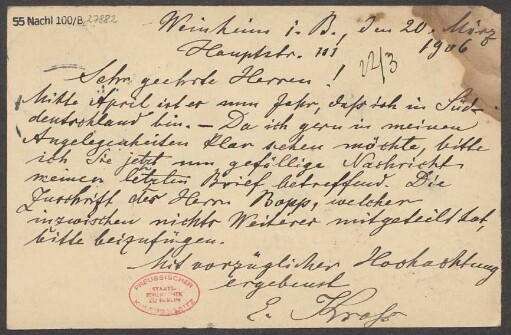 55 Nachl 100/B, 27882
Weinheim i. B., den 20. März
Hauptstr. 111 1906
22/3
Sehr geehrte Herren!
Mitte April ist es nun Jahr, daß ich in Süd-
deutschland bin. – Da ich gern in meinen
Angelegenheiten klar sehen möchte, bitte
ich Sie jetzt um gefällige Nachricht
meinen letzten Brief betreffend. Die
Zuschrift des Herrn Bopp, welcher
inzwischen nichts Weiteres mitgeteilt hat,
bitte beizufügen.
Mit vorzüglicher Hochachtung
ergebenst
E. Kross
PREUSSISCHER
STAATS-
BIBLIOTHEK
ZU BERLIN
KULTURBESITZ